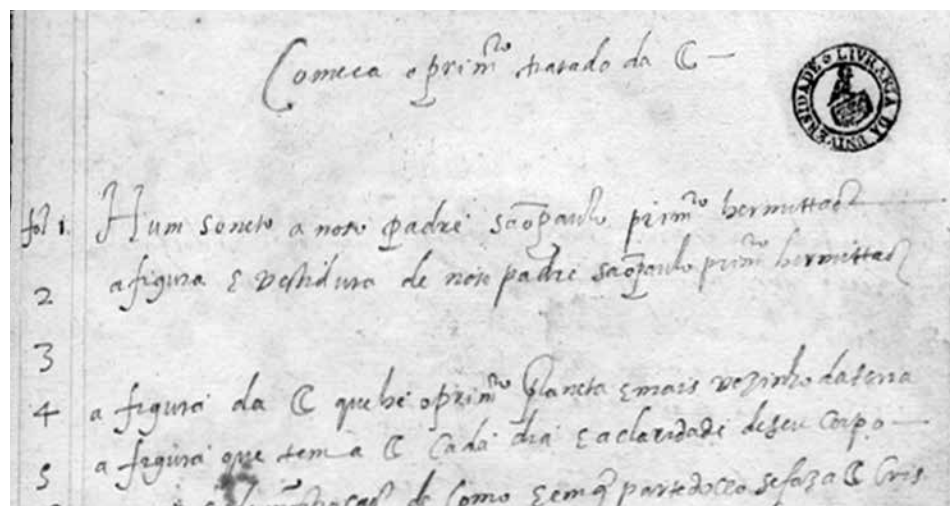 Comeca o prim^ro tratado da ☾ —
LIVRARIA DA UNIVERSIDADE
fol 1. Hum soneto a noso padre são paulo prim^ro hermittaõ
2 a figura e vestidura de noso padre são paulo prim^ro hermittaõ
3
4 a figura da ☾ que he o prim^ro planeta e mais vezinho da terra
5 a figura que tem a ☾ cada dia e a claridade de seu corpo —
de como e em q̃ parte do ceo se faz a ☾ Cris